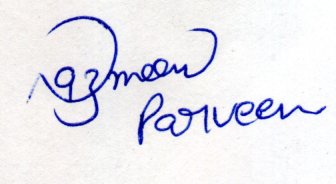 Nazmeen
Parveen